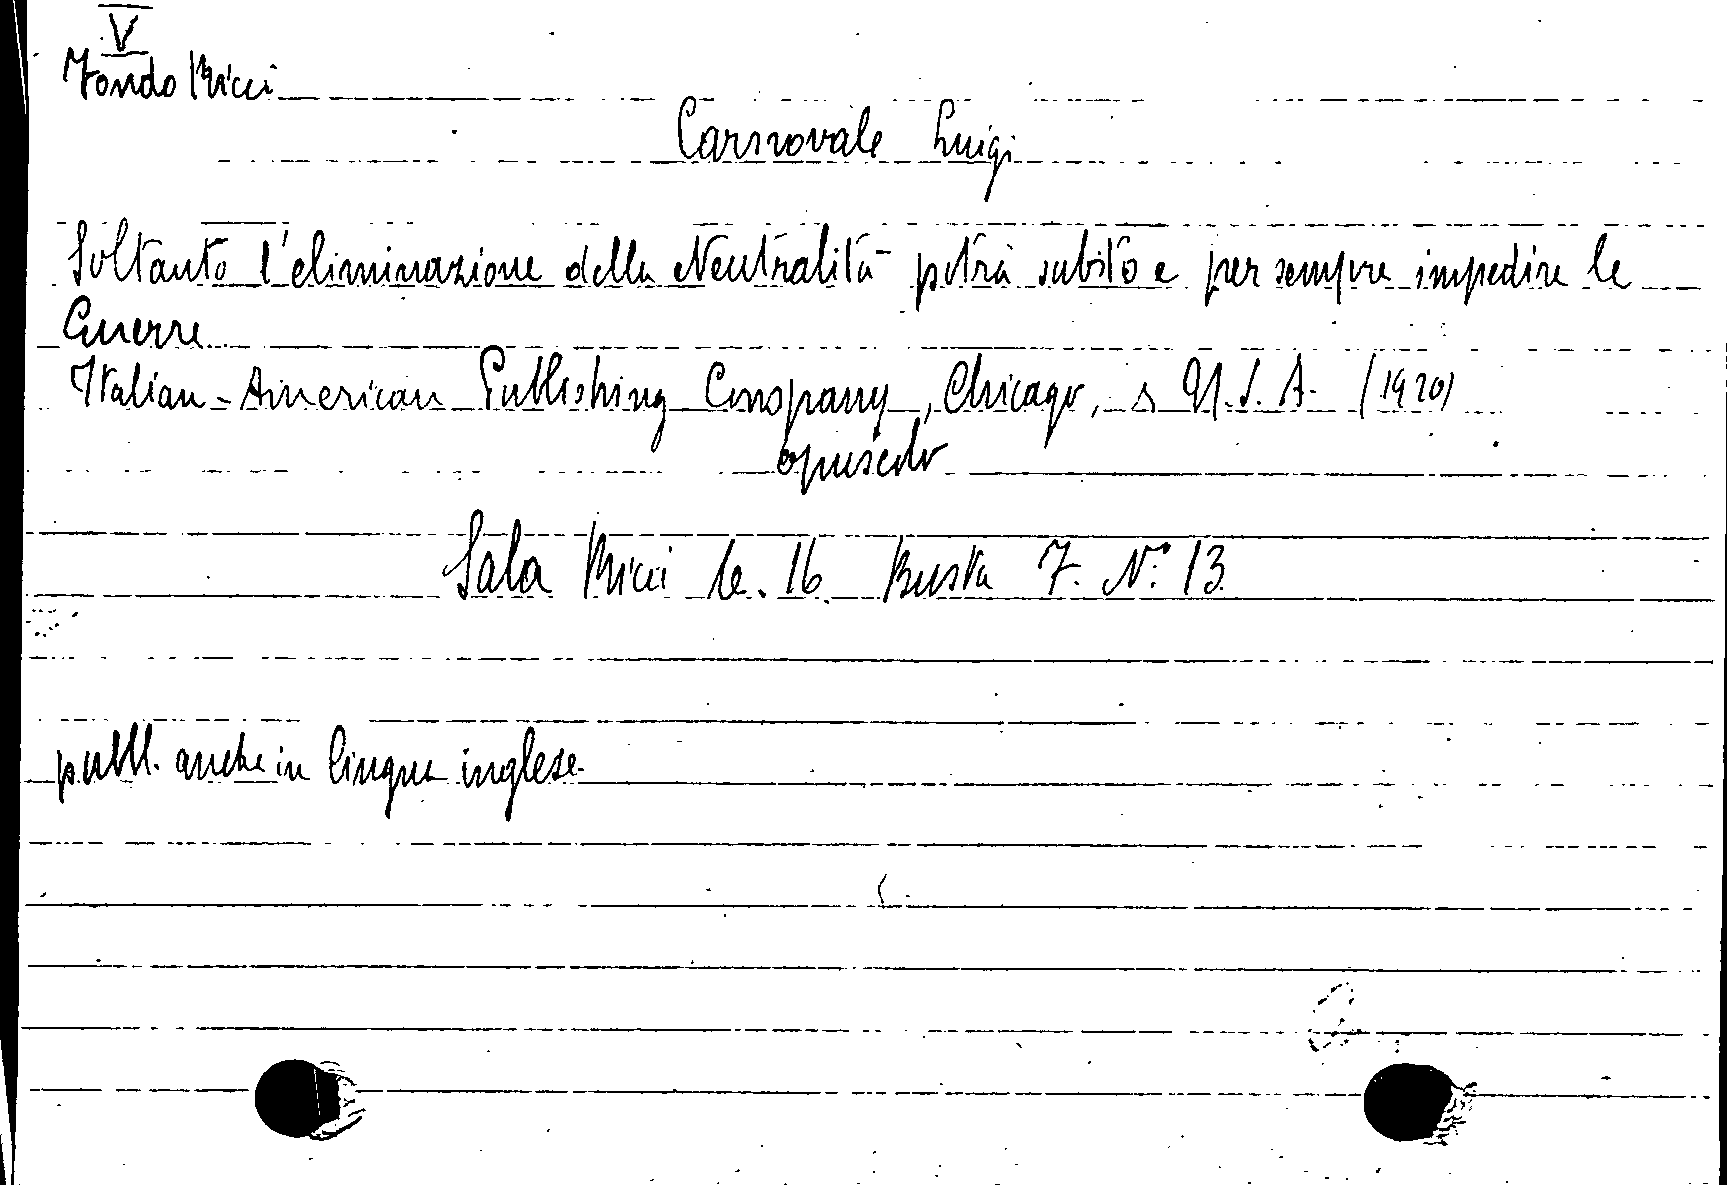 V
Fondo Ricci
Carnovale Luigi
Soltanto l'eliminazione della Neutralità potrà subito e per sempre impedire le
Guerre
Italian-American Publishing Company, Chicago, U.S.A. (1920)
opuscolo
Sala Ricci le. 16 Busta 7. N.° 13
pubbl. anche in lingua inglese